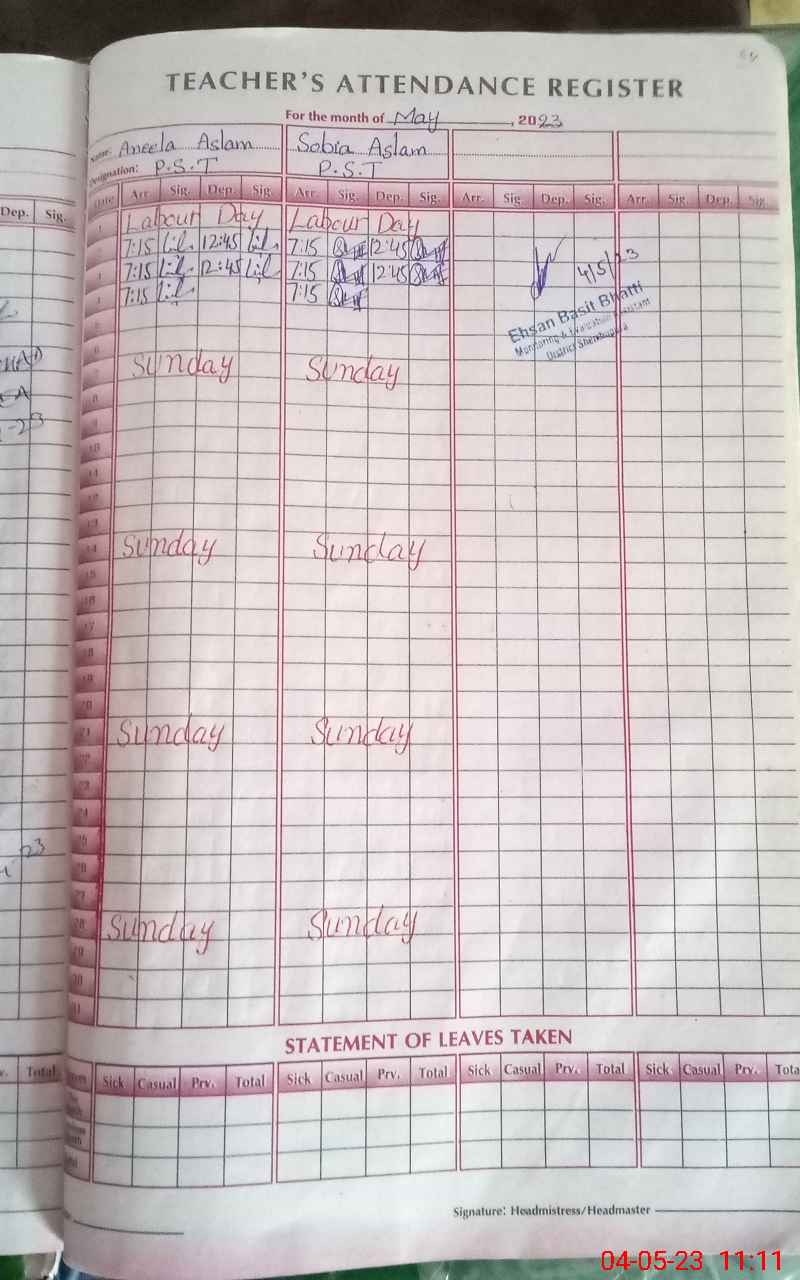 TEACHER'S ATTENDANCE REGISTER
For the month of May, 2023
Name: Aneela Aslam Sobia Aslam
Designation: P.S.T P.S.T
Date Arr. Sig. Dep. Sig. Arr. Sig. Dep. Sig. Arr. Sig. Dep. Sig. Arr. Sig. Dep. Sig.
1 Labour Day Labour Day
7:15 12:45 7:15 12:45
7:15 12:45 7:15 12:45 4/5/23
7:15 7:15
Ehsan Basit Bhatti
Monitoring & Evaluation Assistant
District Sheikhupura
6
7 Sunday Sunday
8
9
10
11
12
13
14 Sunday Sunday
15
16
17
18
19
20
21 Sunday Sunday
22
23
24
25
26
27
28 Sunday Sunday
29
30
31
STATEMENT OF LEAVES TAKEN
Sick Casual Prv. Total Sick Casual Prv. Total Sick Casual Prv. Total Sick Casual Prv. Tota
Signature: Headmistress/Headmaster
Dep. Sig.
23
Total
04-05-23 11:11